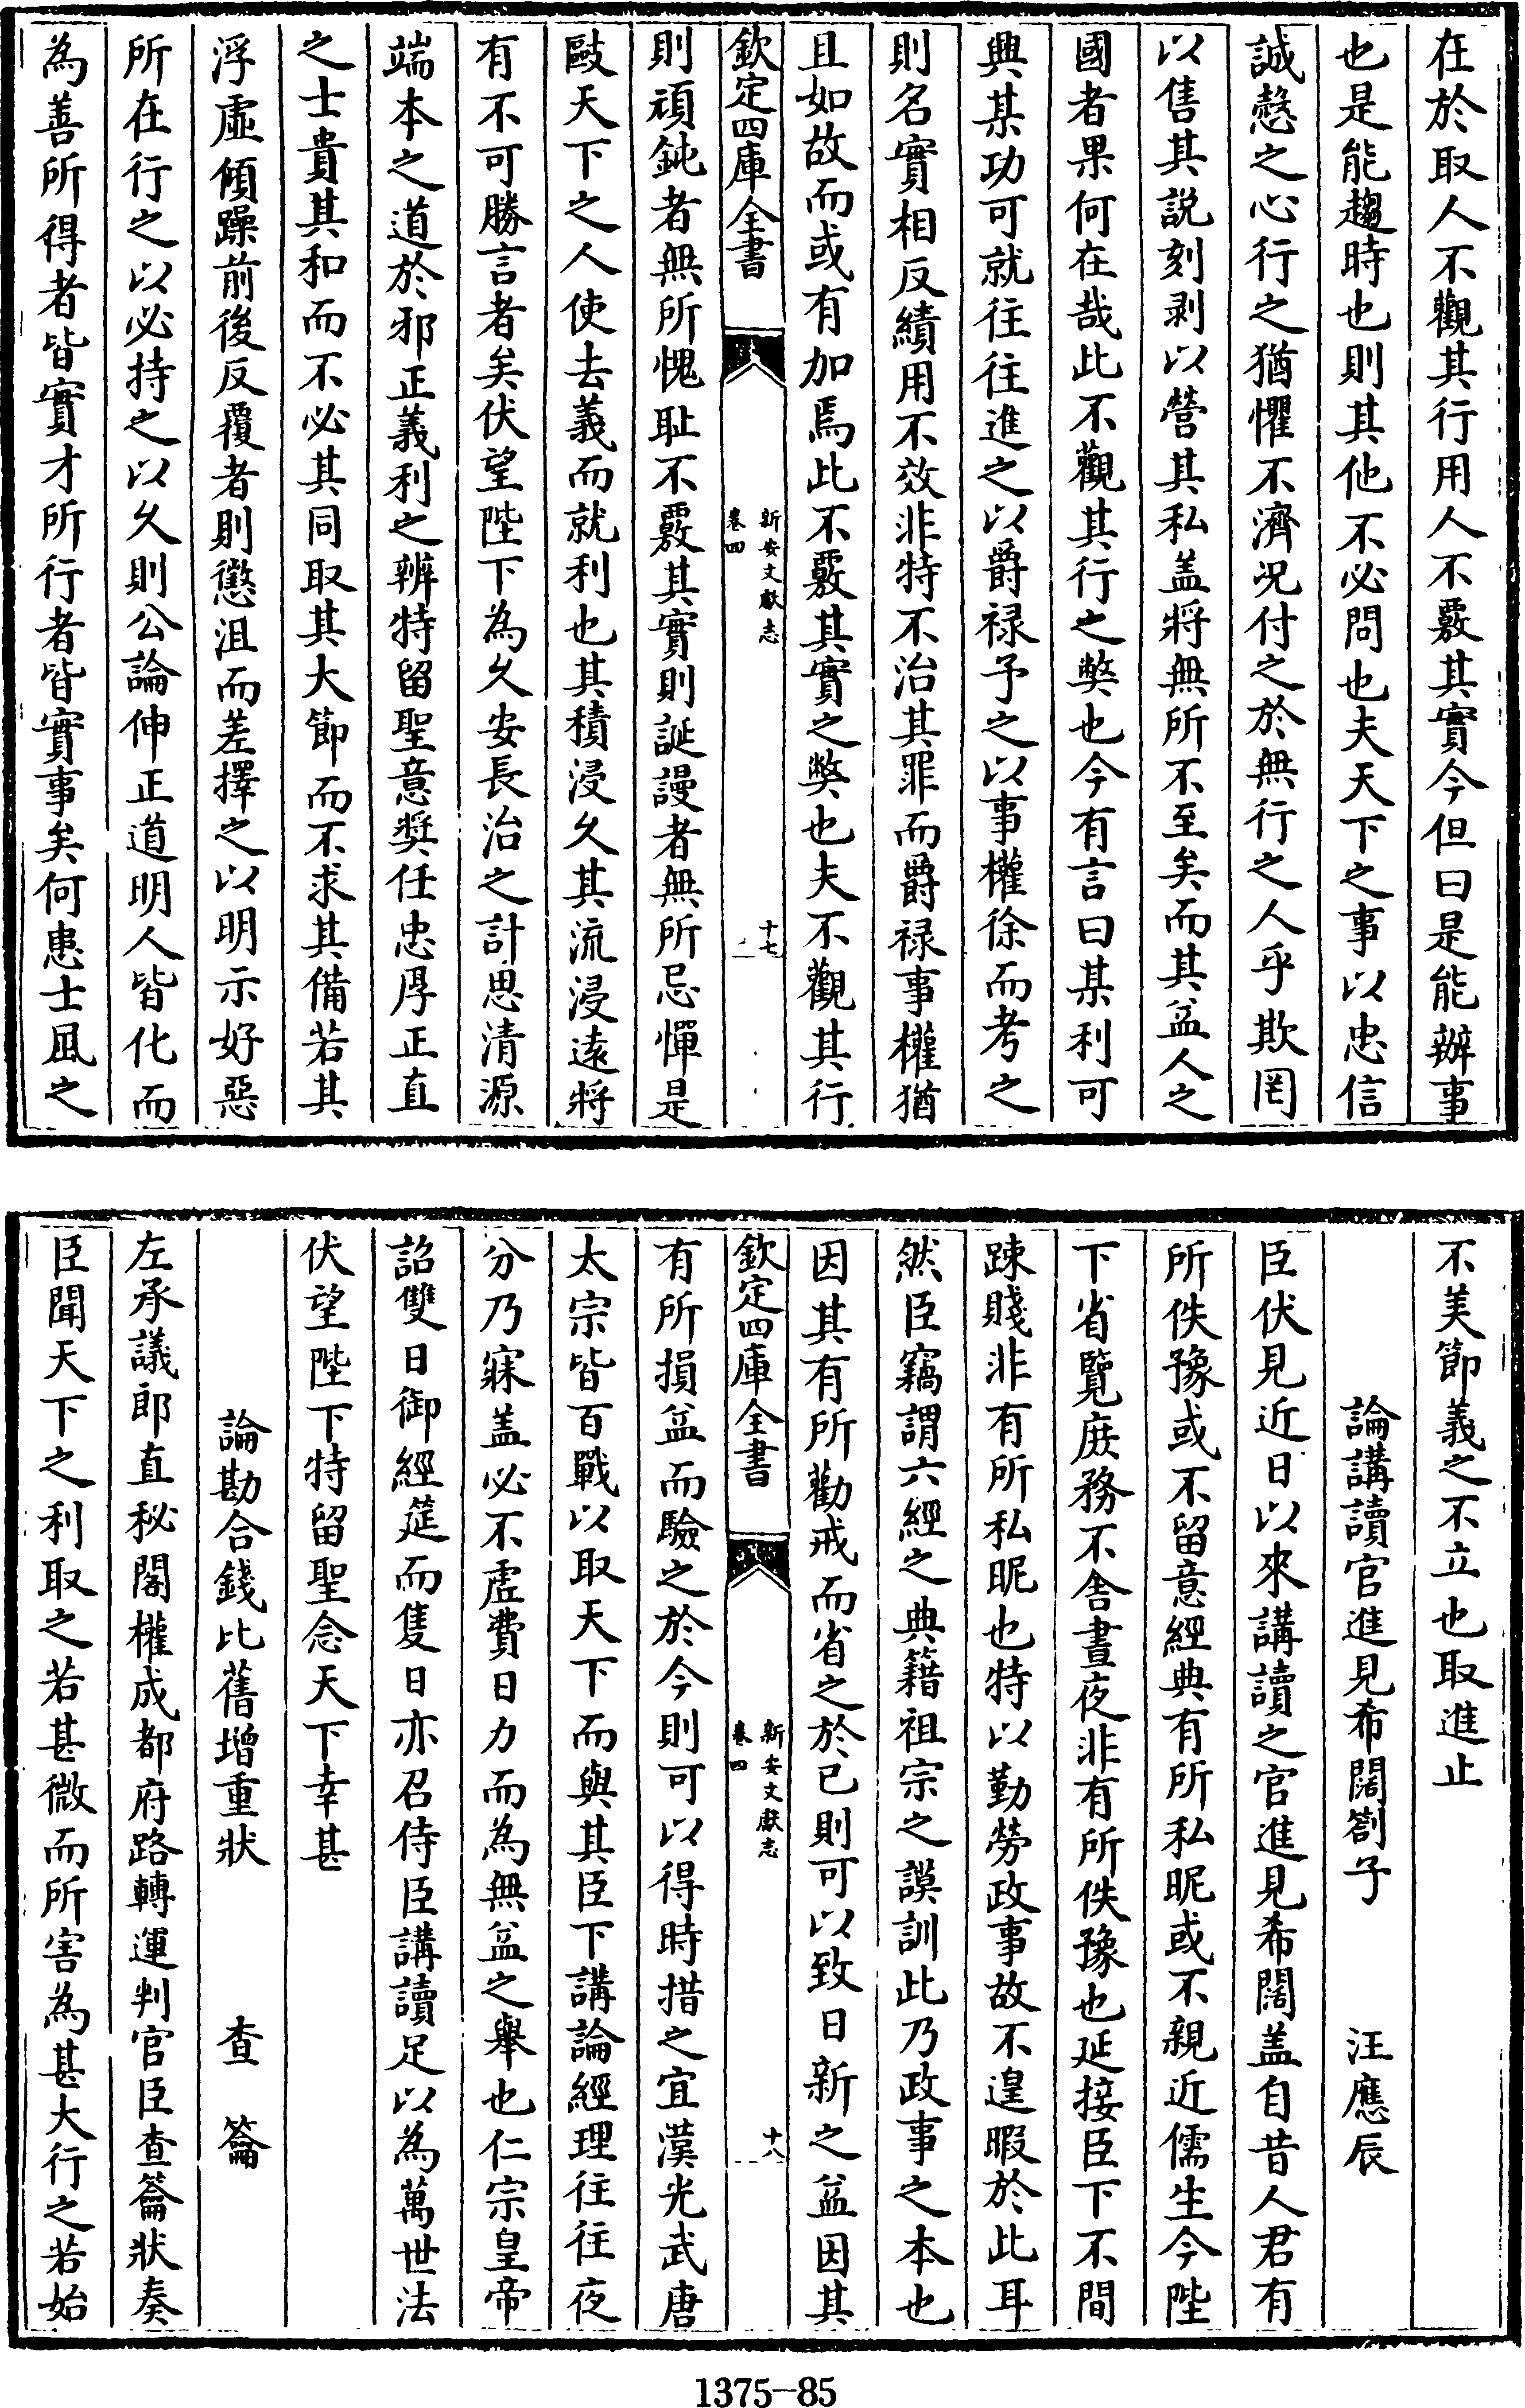 在於取人不觀其行用人不覈其實今但曰是能辦事
也是能趨時也則其他不必問也夫天下之事以忠信
誠慤之心行之猶懼不濟况付之於無行之人乎欺罔
以售其説刻剥以營其私盖將無所不至矣而其益人之
國者果何在哉此不觀其行之獘也今有言曰某利可
興某功可就往往進之以爵禄予之以事權徐而考之
則名實相反績用不效非特不治其罪而爵禄事權猶
且如故而或有加焉此不覈其實之獘也夫不觀其行
欽定四庫全書
新安文獻志
卷四
十七
則頑鈍者無所愧耻不覈其實則誕謾者無所忌憚是
敺天下之人使去義而就利也其積浸久其流浸逺將
有不可勝言者矣伏望陛下為久安長治之計思清源
端本之道於邪正義利之辨特留聖意奬任忠厚正直
之士貴其和而不必其同取其大節而不求其備若其
浮虛傾躁前後反覆者則懲沮而差擇之以明示好惡
所在行之以必持之以久則公論伸正道明人皆化而
為善所得者皆實才所行者皆實事矣何患士風之
不美節義之不立也取進止
論講讀官進見希闊劄子 汪應辰
臣伏見近日以來講讀之官進見希闊盖自昔人君有
所佚豫或不留意經典有所私昵或不親近儒生今陛
下省覽庶務不舍晝夜非有所佚豫也延接臣下不間
踈賤非有所私昵也特以勤勞政事故不遑暇於此耳
然臣竊謂六經之典籍祖宗之謨訓此乃政事之本也
因其有所勸戒而省之於已則可以致日新之益因其
欽定四庫全書
新安文獻志
卷四
十八
有所損益而驗之於今則可以得時措之宜漢光武唐
太宗皆百戰以取天下而與其臣下講論經理往往夜
分乃寐盖必不虛費日力而為無益之舉也仁宗皇帝
詔雙日御經筵而隻日亦召侍臣講讀足以為萬世法
伏望陛下特留聖念天下幸甚
論勘合錢比舊增重狀 查籥
左承議郎直秘閣權成都府路轉運判官臣查籥狀奏
臣聞天下之利取之若甚微而所害為甚大行之若始
1375-85